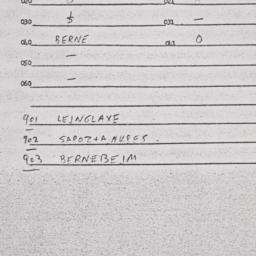 030 $ 031 —
040 BERNE 041 0
050 —
060 —
901 LEINGLAVE
902
903 BERNEBEIM